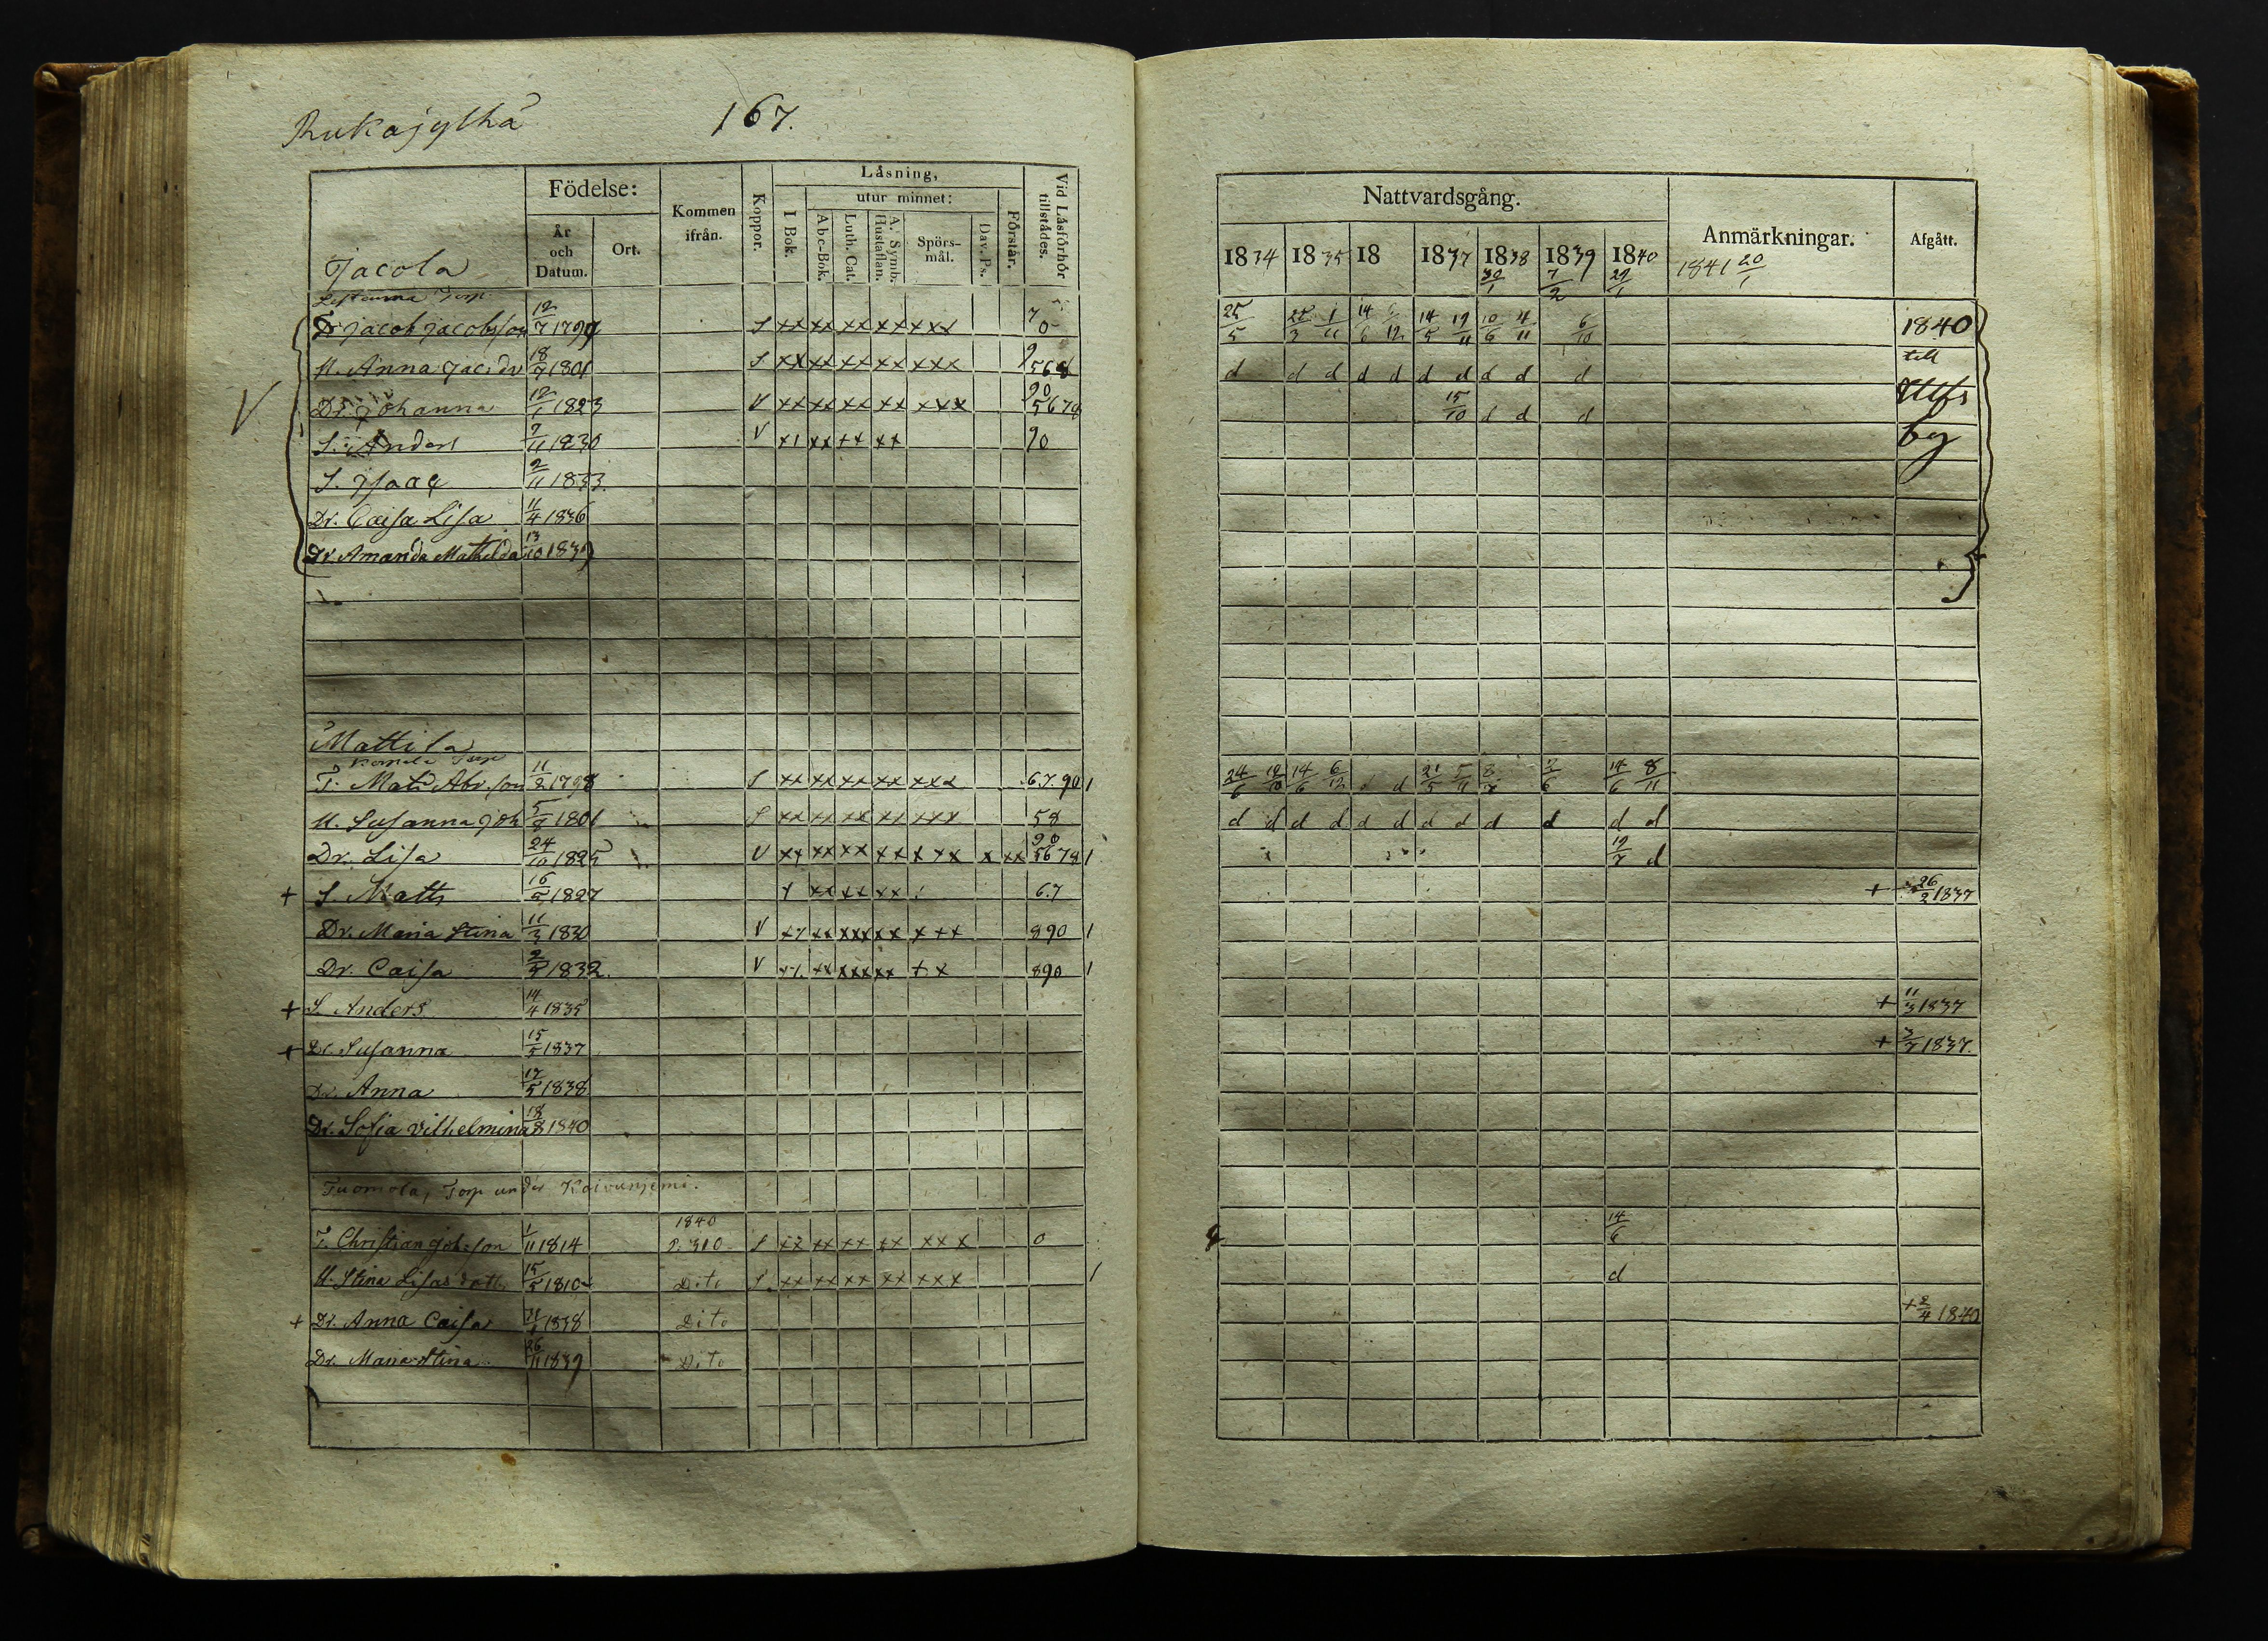 Rukajylhä 167.
Födelse: Kommen ifrån. Koppor. Läsning, Vid Läsförhör tillstådes.
utur minnet:
År och Datum. Ort. I Bok. Abc-Bok. Luth. Cat. A. Symb. Hustaflan. Spörs-mål. Dav. Ps. Förstår.
Jacola
Torp
Jacob Jacobsson 12/7 1799 S xx xx xx xx xxx 7 0
H. Anna Jac. dr 18/7 1801 S xx xx xx xx xxx 9 568
Dr. Johanna 12/1 1823 V xx xx xx xx xxx 90 5678
S. Anders 7/11 1830 V x1 xx xx xx 90
S. Isaac 2/11 1833
Dr. Caisa Lisa 11/4 1836
Dr. Amanda Mathilda 13/10 1839
Mattila
Torp
T. Matts Abr. son 11/2 1798 S xx xx xx xx xxx 67.90 1
H. Susanna Joh 1801 S xx xx xx xx xxx 58
Dr. Lisa 24/10 1825 V xx xx xx xx xxx x xx 90 5678 1
+ S. Matts 1827 xx xx xx 67
Dr. Maria Stina 11/3 1830 V xx xxx xx xxx 890 1
Dr. Caisa 1832. V xx xxx xx xx 890 1
+ S. Anders 14/4 1835
+ Dr. Susanna 15/5 1837
Dr. Anna 17/5 1838
Dr. Sofia Vilhelmina 18/8 1840
Tuomola, Torp under Koivunjemi.
1840
T. Christian Joh. son 1/11 1814 P. 310 S xx xx xx xx xxx 0
H. Stina Lisas dotter 15/5 1810 Dito S xx xx xx xx xxx 1
+ Dr. Anna Caisa 1838 Dito
Dr. Maria Stina 26/11 1839 Dito
Nattvardsgång. Anmärkningar. Afgått.
1834 1835 18 1837 1838 1839 1840 1841 20/1
30/1 7/2 29/1
25/5 1/11 14/6 14/5 19/11 10/6 4/11 6/10 1840
d d d d d d d d d d till
15/10 d d d
by
24/6 14/6 6/12 d d 21/5 5/11 14/6 8/11
d d d d d d d d d d d d
d
+ 26/2 1837
+ 11/3 1837
+ 3/7 1837.
14/6
d
+ 2/4 1840